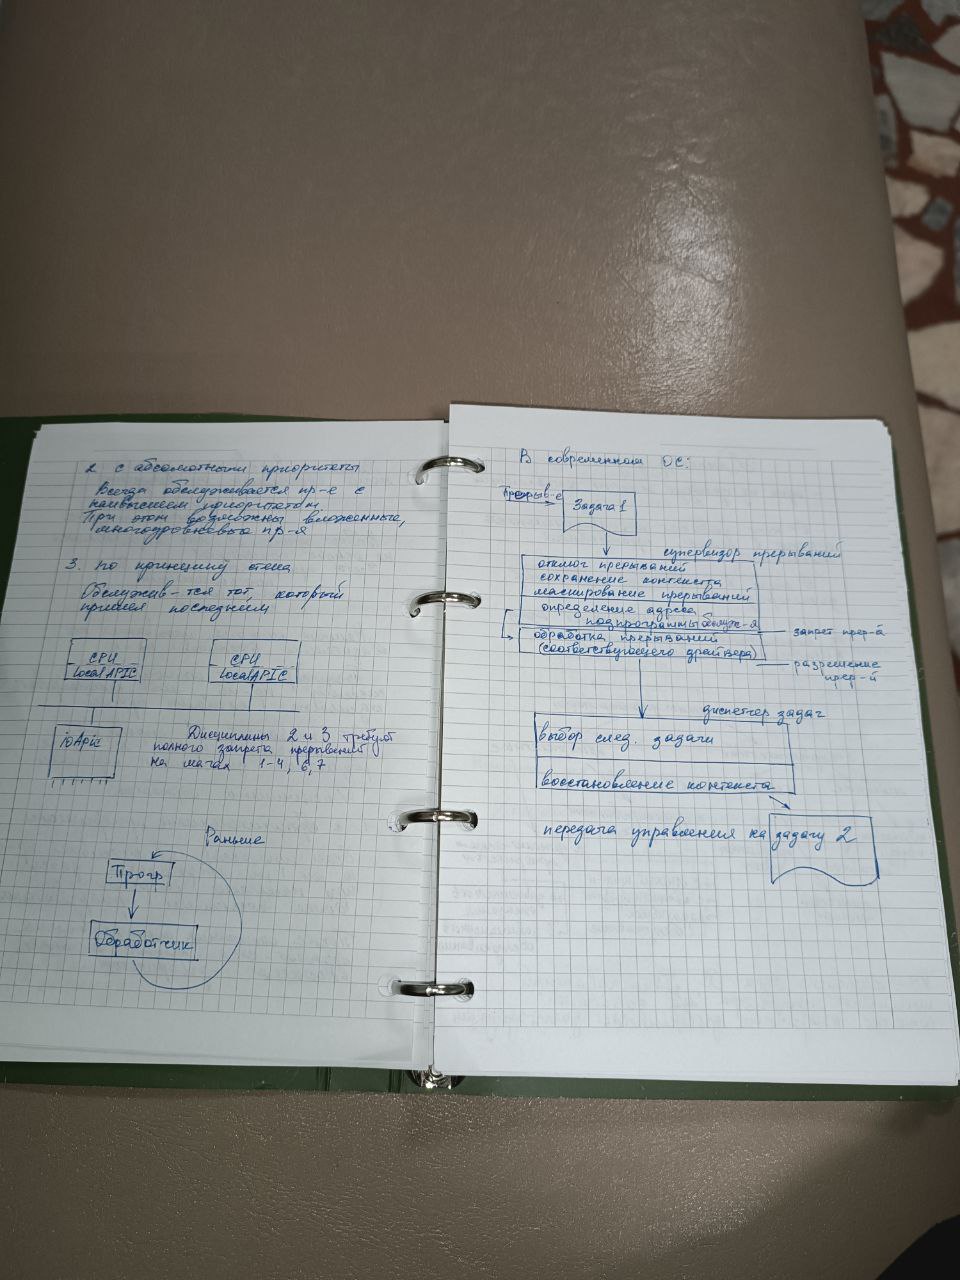 2 с абсолютными приоритеты
Всегда обслуживается пр-е с
наивысшем приоритетом
При этом возможны вложенные,
многоуровневые пр-я
3. по принципу стека
Обслужив-тся тот, который
пришел последним
CPU
Local APIC
CPU
Local APIC
ioApic
Дисциплины 2 и 3 требуют
полного запрета прерываний
на шагах 1-4, 6,7
Раньше
Прогр
Обработчик
В современном ОС:
Прерыв-е
Задача 1
супервизор прерываний
отключ прерываний
сохранение контекста
маскирование прерываний
определение адреса
подпрограммы обслуж-я
запрет прер-й
обработка прерываний
(соответствующего драйвера)
разрешение
прер-й
диспетчер задач
выбор след. задачи
восстановление контекста
передача управления на задачу 2